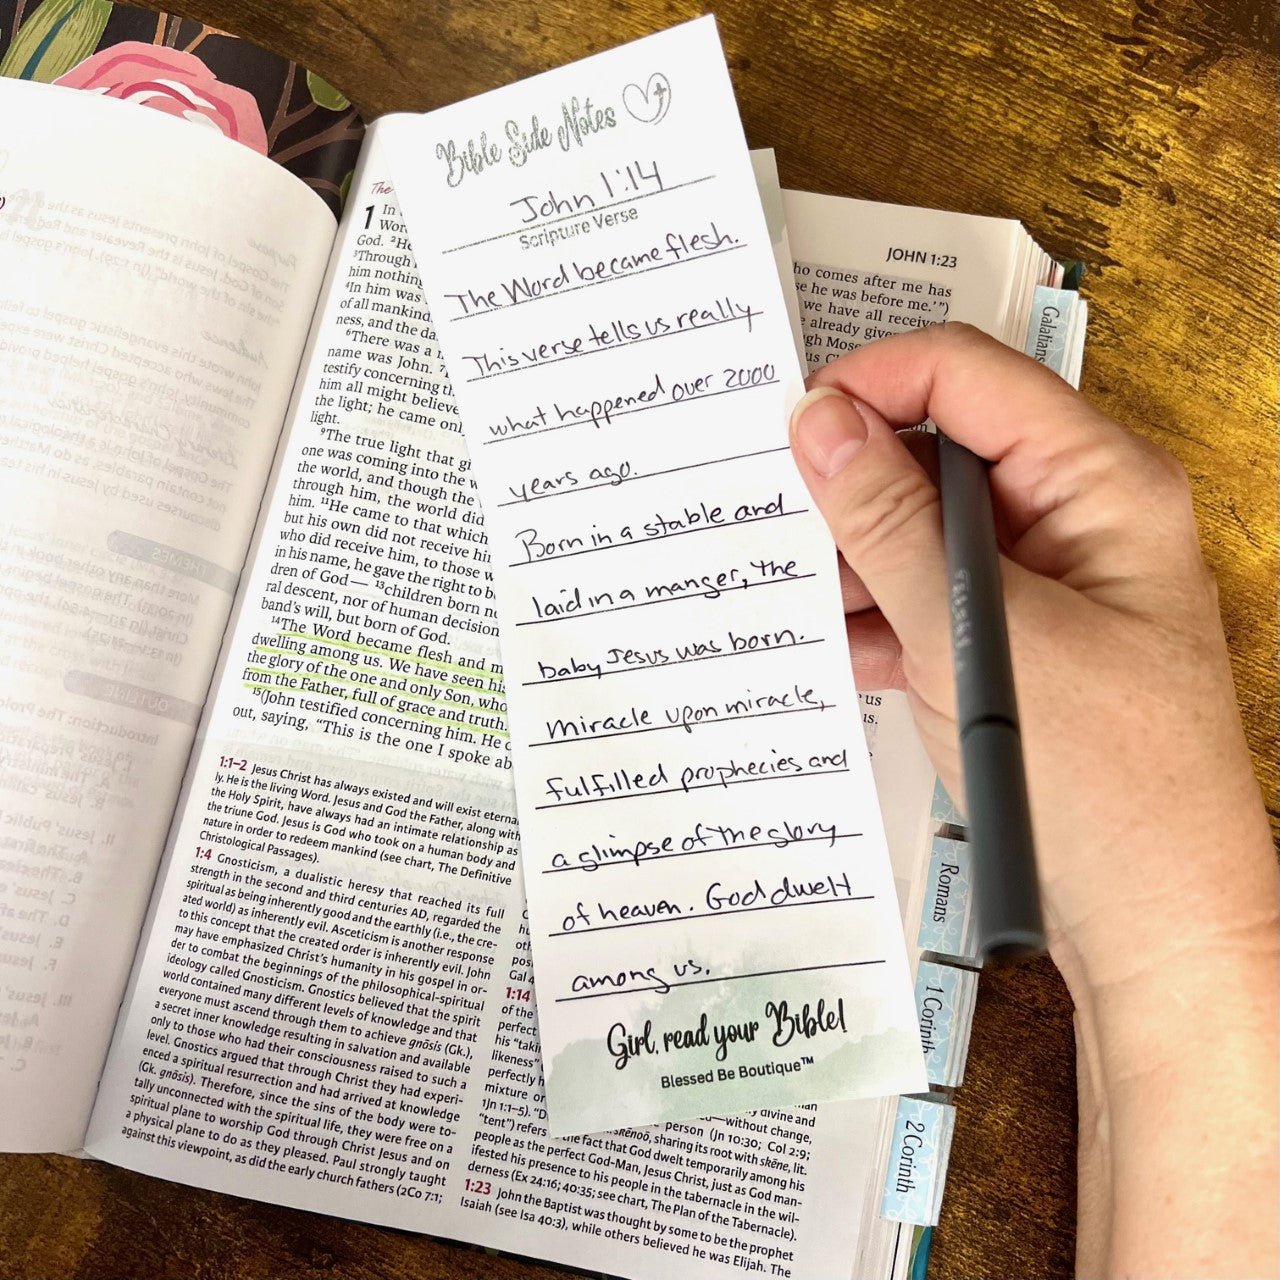 Bible Side Notes
John 1:14
Scripture Verse
The Word became flesh.
This verse tells us really
what happened over 2000
years ago.
Born in a stable and
laid in a manger, the
baby Jesus was born.
Miracle upon miracle,
fulfilled prophecies and
a glimpse of the glory
of heaven. God dwelt
among us.
Girl, read your Bible!
Blessed Be Boutique™
The
1 In
Wor
God. ²He
³Through
him nothing
⁴In him was
of all mankind.
ness, and the da
⁶There was a
name was John. ⁷
testify concerning th
him all might believe
the light; he came onl
light.
⁹The true light that gi
one was coming into the w
the world, and though the
through him, the world did
him. ¹¹He came to that which
but his own did not receive hi
who did receive him, to those w
in his name, he gave the right to b
dren of God— ¹³children born no
ral descent, nor of human decision
band's will, but born of God.
¹⁴The Word became flesh and m
dwelling among us. We have seen his
the glory of the one and only Son, who
from the Father, full of grace and truth.
¹⁵(John testified concerning him. He c
out, saying, “This is the one I spoke ab
1:1–2 Jesus Christ has always existed and will exist eternal
ly. He is the living Word. Jesus and God the Father, along with
the Holy Spirit, have always had an intimate relationship as
the triune God. Jesus is God who took on a human body and
nature in order to redeem mankind (see chart, The Definitive
Christological Passages).
1:4 Gnosticism, a dualistic heresy that reached its full
strength in the second and third centuries AD, regarded the
spiritual as being inherently good and the earthly (i.e., the cre-
ated world) as inherently evil. Asceticism is another response
to this concept that the created order is inherently evil. John
may have emphasized Christ's humanity in his gospel in or-
der to combat the beginnings of the philosophical-spiritual
ideology called Gnosticism. Gnostics believed that the spirit
world contained many different levels of knowledge and that
everyone must ascend through them to achieve gnōsis (Gk.),
a secret inner knowledge resulting in salvation and available
only to those who had their consciousness raised to such a
level. Gnostics argued that through Christ they had experi-
enced a spiritual resurrection and had arrived at knowledge
(Gk. gnōsis). Therefore, since the sins of the body were to-
tally unconnected with the spiritual life, they were free on a
spiritual plane to worship God through Christ Jesus and on
a physical plane to do as they pleased. Paul strongly taught
against this viewpoint, as did the early church fathers (2Co 7:1;
Gal 4
1:14
of the
perfect
his “taki
likeness”
perfectly h
mixture or
1Jn 1:1–5). “D
“tent”) refers
divine and
—without change,
person (Jn 10:30; Col 2:9;
skēnoō, sharing its root with skēne, lit.
the fact that God dwelt temporarily among his
people as the perfect God-Man, Jesus Christ, just as God man-
ifested his presence to his people in the tabernacle in the wil-
derness (Ex 24:16; 40:35; see chart, The Plan of the Tabernacle).
1:23 John the Baptist was thought by some to be the prophet
Isaiah (see Isa 40:3), while others believed he was Elijah. The
JOHN 1:23
ho comes after me has
se he was before me.’”)
we have all received
already give
gh Mose
us
us.
Galatians
Romans
1 Corinth
2 Corinth